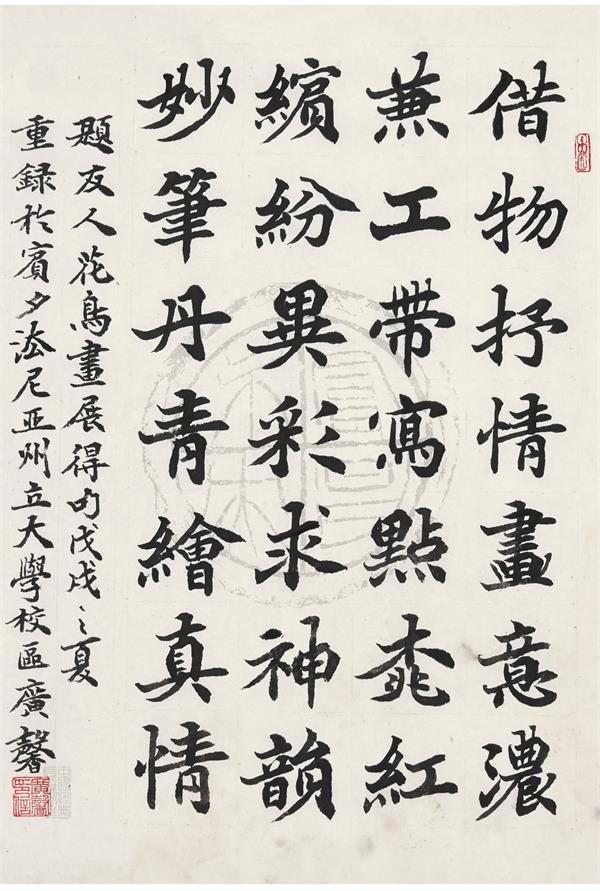 借物抒情畫意濃
兼工帶寫點桃紅
繽紛異彩求神韻
妙筆丹青繪真情
題友人花鳥畫展得句戊戌之夏
重録於賓夕法尼亚州立大學校區廣馨